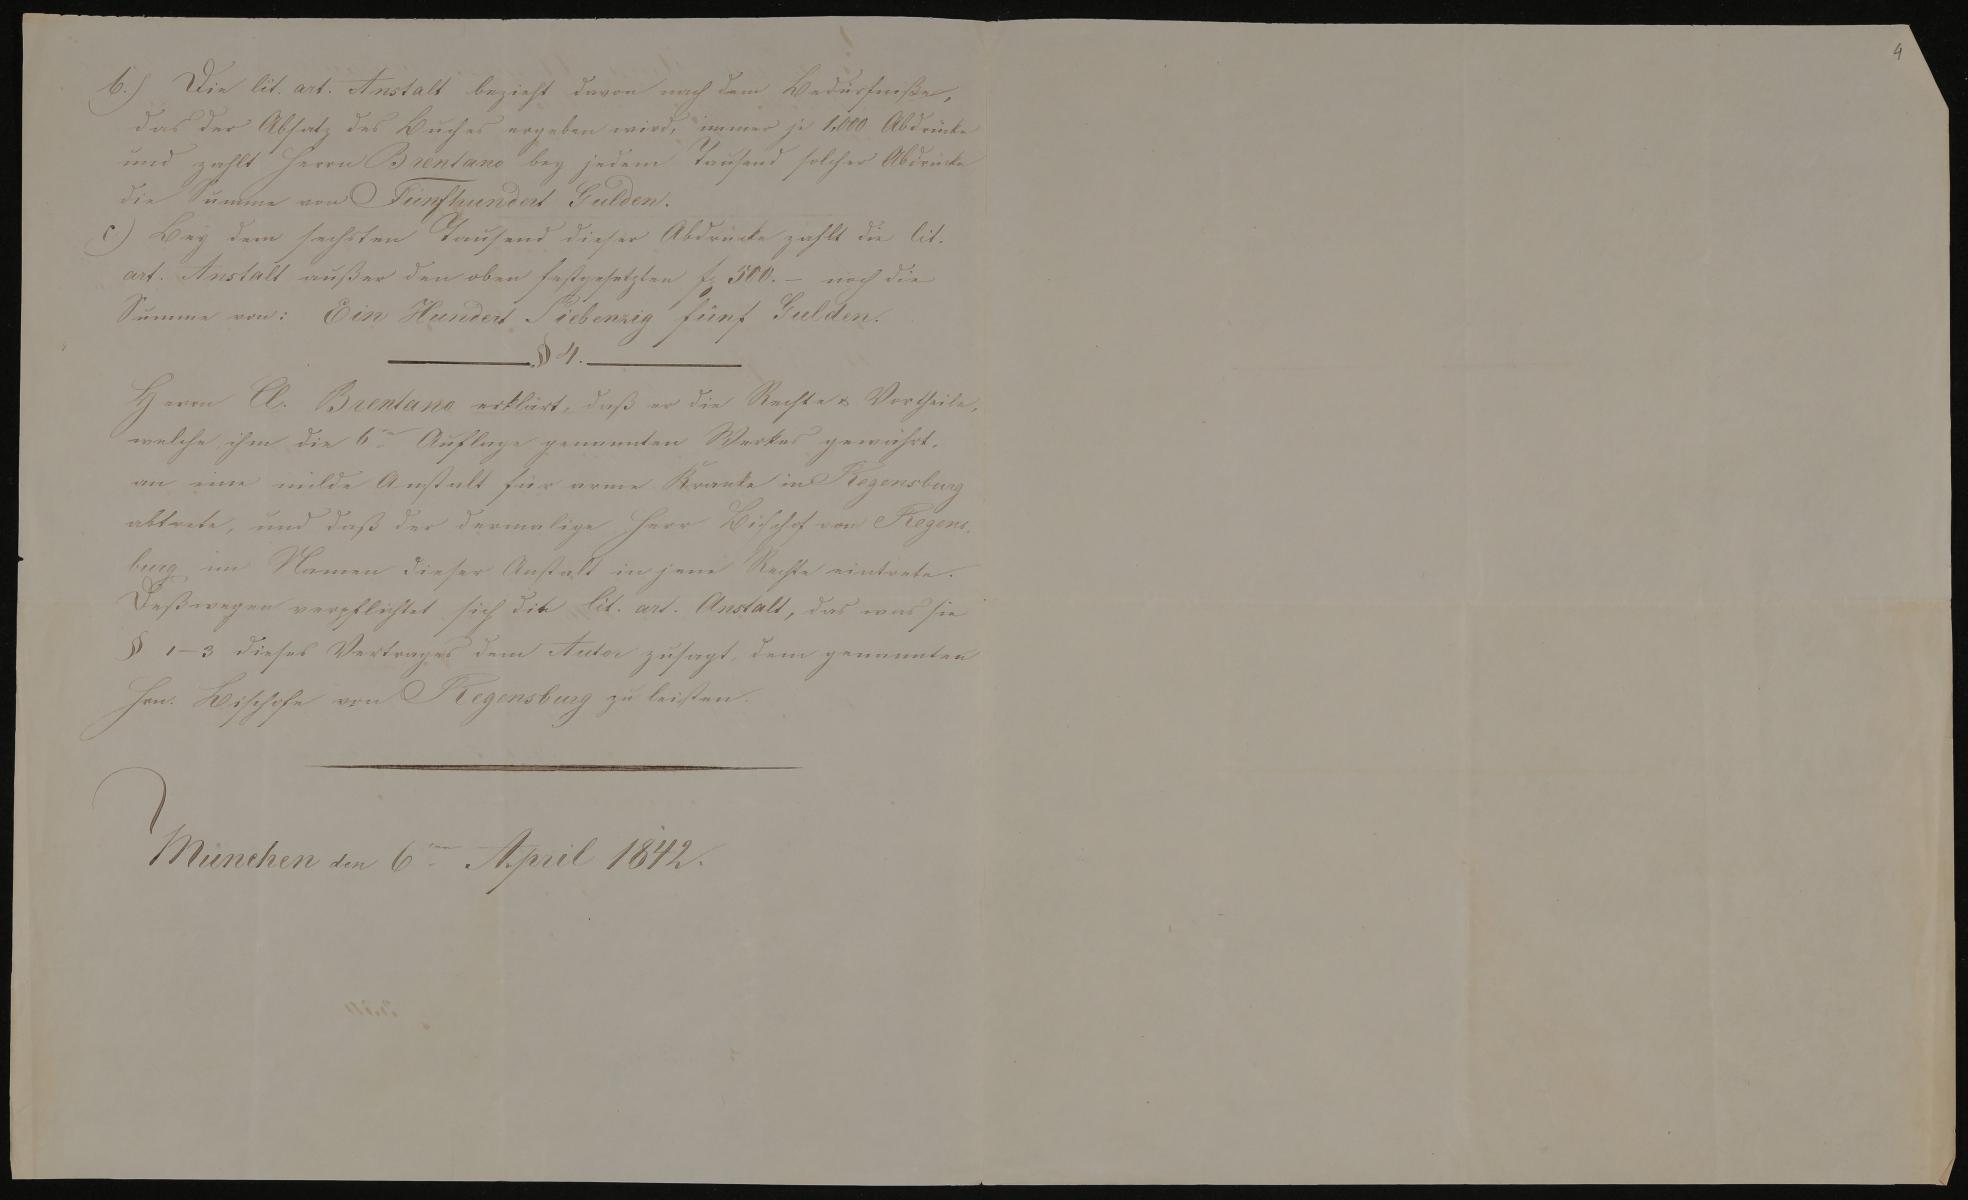 b.) Die lit. art. Anstalt bezieht davon nach dem Bedürfniße,
das der Absatz des Buches ergeben wird, immer je 1,000 Abdrücke
und zahlt Herrn Brentano bey jedem Tausend solcher Abdrücke
die Summe von Fünfhundert Gulden.
c) Bey dem sechsten Tausend dieser Abdrücke zahlt die lit.
art. Anstalt außer den oben festgesetzten f. 500. – noch die
Summe von: Ein Hundert Siebenzig fünf Gulden.
§ 4.
Herrn Cl. Brentano erklärt, daß er die Rechte & Vortheile,
welche ihm die 6te Auflage genannten Werkes gewährt,
an eine milde Anstalt für arme Kranke in Regensburg
abtrete, und daß der dermalige Herr Bischof von Regens-
burg im Namen dieser Anstalt in jene Rechte eintrete.
Deßwegen verpflichtet sich die lit. art. Anstalt, das was sie
§ 1–3 dieses Vertrages dem Autor zusagt, dem genannten
Hrn. Bischofe von Regensburg zu leisten.
München den 6ten April 1842.
4